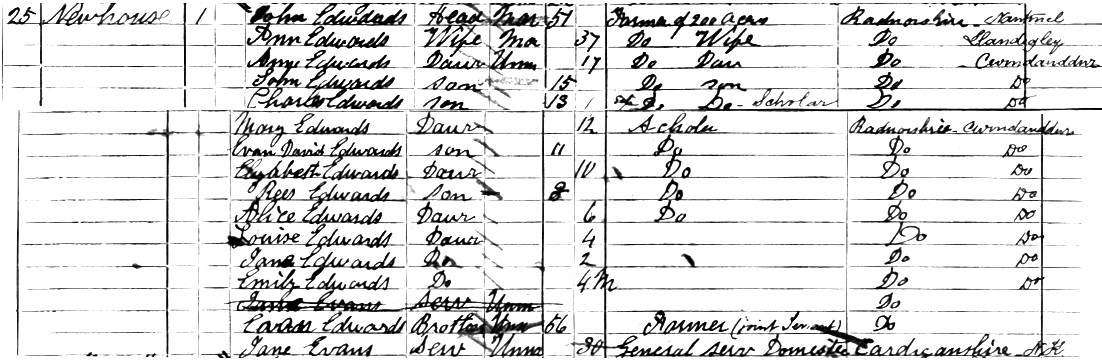 25 Newhouse 1 John Edwards Head Mar 51 Farmer of 200 Acres Radnorshire - Nantmel
Ann Edwards Wife Ma 37 Do Wife Do Llandegley
Anne Edwards Daur Unm 17 Do Daur Do - Cwmdauddwr
John Edwards son 15 Do son Do Do
Charles Edwards son 13 Do Do - Scholar Do Do
Mary Edwards Daur 12 Scholar Radnorshire - Cwmdauddwr
Evan David Edwards son 11 Do Do Do
Elizabeth Edwards Daur 10 Do Do Do
Rees Edwards son 8 Do Do Do
Alice Edwards Daur 6 Do Do Do
Louise Edwards Daur 4 Do Do
Jane Edwards Do 2 Do Do
Emily Edwards Do 4 M Do Do
Jane Evans Serv Unm Do
Edwards Unm 56 Farmer (joint Tenant) Do
Jane Evans Serv Unm 30 General Serv Domestic Cardiganshire - N.K